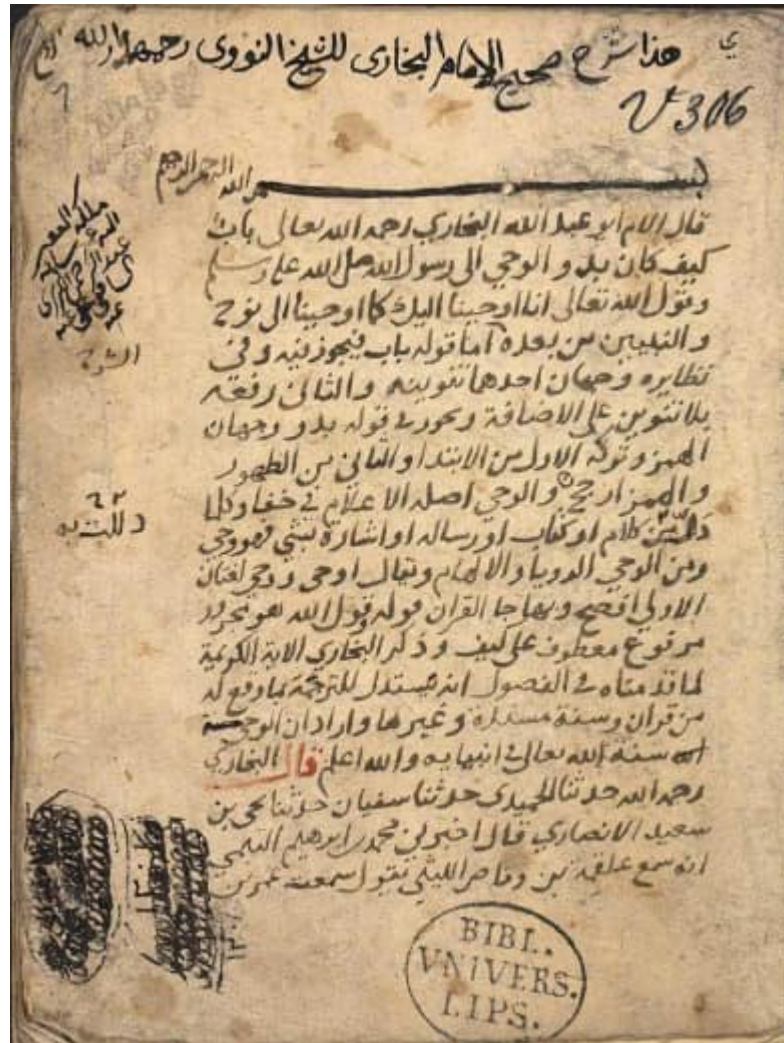 هذا شرح صحيح الامام البخارى للشيخ النووى رحمهما الله
V 306
بسم الله الرحمن الرحيم
قال الامام ابو عبد الله البخاري رحمه الله تعالى باب
كيف كان بدو الوحي الى رسول الله صلى الله عليه وسلم
وقول الله تعالى انا اوحينا اليك كما اوحينا الى نوح
والنبيين من بعده اما قوله باب فيجوز فيه وفي
نظايره وجهان احدهما تنوينه والثاني رفعه
بلا تنوين على الاضافة ويجوز في قوله بدو وجهان
الهمز وتركه الاول من الابتدا والثاني من الظهور
والهمز ارجح والوحي اصله الاعلام في خفا وكلما
من كلام او كتاب او رساله او اشارة بشي فهو وحي
ومن الوحي الرويا والالهام ويقال اوحى ووحى لغتان
الاولى افصح وبها جا القران قوله وقول الله هو مجرور
مرفوع معطوف على كيف وذكر البخاري الاية الكريمة
لما قدمناه في الفصول انه يستدل للترجمة بما وقع له
من قران وسنة مسندة وغيرها واراد ان الوحي سنة
سنة الله تعالى في انبيايه والله اعلم قال البخاري
رحمه الله حدثنا الحميدى حدثنا سفيان حدثنا يحيى بن
سعيد الانصاري قال اخبرني محمد بن ابرهيم التيمي
انه سمع علقمة بن وقاص الليثي يقول سمعت عمر بن
BIBL.
VNIVERS.
LIPS.